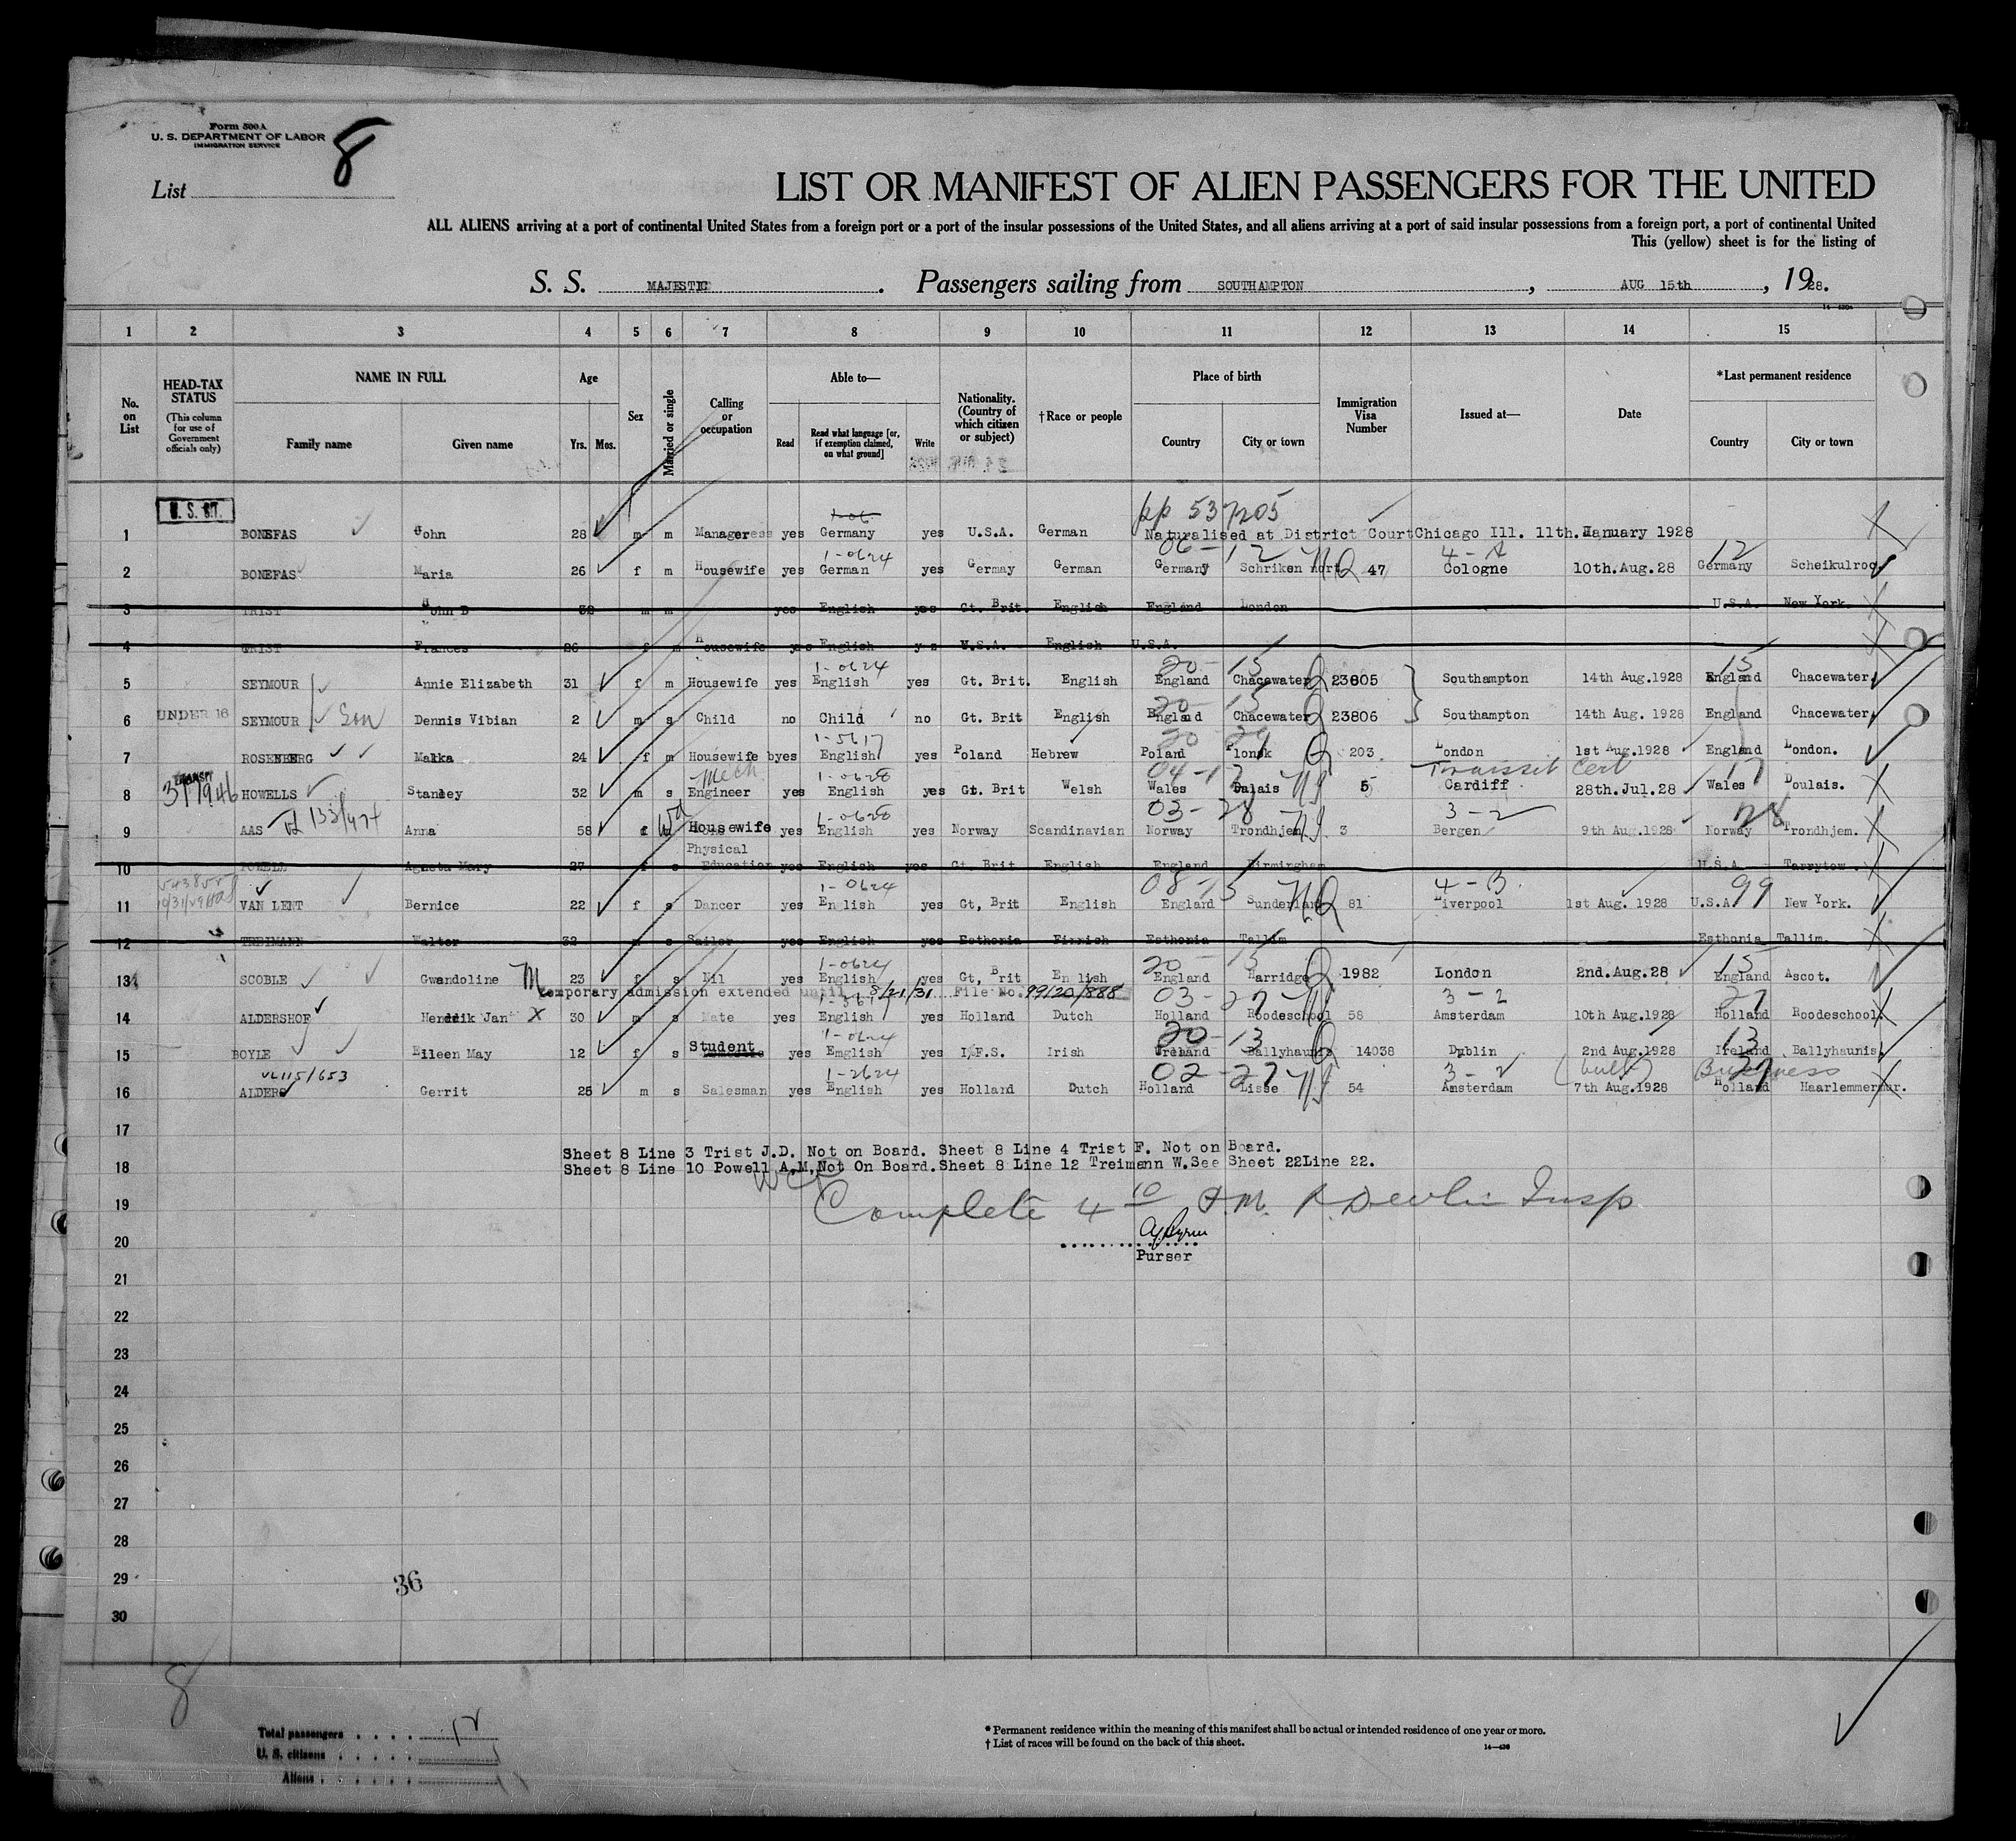 Form 500 A
U. S. DEPARTMENT OF LABOR
IMMIGRATION SERVICE
8
List
LIST OR MANIFEST OF ALIEN PASSENGERS FOR THE UNITED
ALL ALIENS arriving at a port of continental United States from a foreign port or a port of the insular possessions of the United States, and all aliens arriving at a port of said insular possessions from a foreign port, a port of continental United
This (yellow) sheet is for the listing of
S. S. MAJESTIC. Passengers sailing from SOUTHAMPTON, AUG 15th, 1928.
1 2 3 4 5 6 7 8 9 10 11 12 13 14 15
No. on List
HEAD-TAX STATUS (This column for use of Government officials only)
NAME IN FULL
Family name Given name
Age
Yrs. Mos.
Sex
Married or single
Calling or occupation
Able to—
Read Read what language [or, if exemption claimed, on what ground] Write
Nationality. (Country of which citizen or subject)
†Race or people
Place of birth
Country City or town
Immigration Visa Number
Issued at—
Date
*Last permanent residence
Country City or town
U. S. CIT. pp 537205
1 BONEFAS John 28 m m Manager yes Germany yes U.S.A. German Naturalised at District Court Chicago Ill. 11th. January 1928
1-0624 06-12 4-A 12
2 BONEFAS Maria 26 f m Housewife yes German yes Germay German Germany Schriken nort NQ 47 Cologne 10th.Aug.28 Germany Scheikulroc
3 TRIST John D 38 m m yes English yes Gt. Brit. English England London U.S.A. New York.
4 TRIST Frances 26 f m Housewife yes English yes U.S.A. English U.S.A.
1-0624 20-15 15
5 SEYMOUR Annie Elizabeth 31 f m Housewife yes English yes Gt. Brit. English England Chacewater Q 23805 Southampton 14th Aug.1928 England Chacewater
20-15
6 UNDER 16 SEYMOUR Son Dennis Vibian 2 m s Child no Child no Gt. Brit English England Chacewater Q 23806 Southampton 14th Aug. 1928 England Chacewater
1-5617
7 ROSENBERG Malka 24 f m Housewife yes English yes Poland Hebrew Poland Plonsk Q 203 London 1st Aug.1928 England London.
TRANSIT Mech 1-0628 04-17 Transit Cert 17
8 HOWELLS Stanley 32 m s Engineer yes English yes Gt. Brit Welsh Wales Dalais 5 Cardiff 28th.Jul.28 Wales Doulais.
133/474 wd 1-0628 03-28 3-2 28
9 AAS Anna 58 f Housewife yes English yes Norway Scandinavian Norway Trondhjem 3 Bergen 9th Aug.1928 Norway Trondhjem.
Physical
10 POWELL Agneta Mary 27 f s Education yes English yes Gt. Brit English England Birmingham U.S.A Tarrytow.
1-0624 08-15 4-B. 99
11 VAN LENT Bernice 22 f s Dancer yes English yes Gt, Brit English England Sunderland NQ 81 Liverpool 1st Aug. 1928 U.S.A New York.
12 TREIMANN Walter 32 m s Sailor yes English yes Esthonia Finnish Esthonia Tallim Esthonia Tallim.
1-0624 20-15 15
13 SCOBLE Gwandoline 23 f s Nil yes English yes Gt, Brit En lish England Harridge Q 1982 London 2nd.Aug.28 England Ascot.
M Temporary admission extended until 8/21/31 File No. 99120/888 03-27 3-2 27
14 ALDERSHOF Hendrik Jan X 30 m s Mate yes English yes Holland Dutch Holland Roodeschool 58 Amsterdam 10th Aug.1928 Holland Roodeschool.
1-0624 20-13 13
15 BOYLE Eileen May 12 f s Student yes English yes I.F.S. Irish Ireland Ballyhaunis Q 14038 Dublin 2nd Aug.1928 Ireland Ballyhaunis
VL115/653 1-2624 02-27 3-2 Business 27
16 ALDERS Gerrit 25 m s Salesman yes English yes Holland Dutch Holland Lisse 54 Amsterdam 7th Aug.1928 Holland Haarlemmermr.
17
Sheet 8 Line 3 Trist J.D. Not on Board. Sheet 8 Line 4 Trist F. Not on Board.
18 Sheet 8 Line 10 Powell A.M.Not On Board.Sheet 8 Line 12 Treimann W.See Sheet 22Line 22.
19 Complete 4 10 P.M. Devlin Insp
20
Purser
21
22
23
24
25
26
27
28
29 36
30
8
Total passengers . . . . 12
U. S. citizens . . . . . 1
Aliens . . . . . .
* Permanent residence within the meaning of this manifest shall be actual or intended residence of one year or more.
† List of races will be found on the back of this sheet.